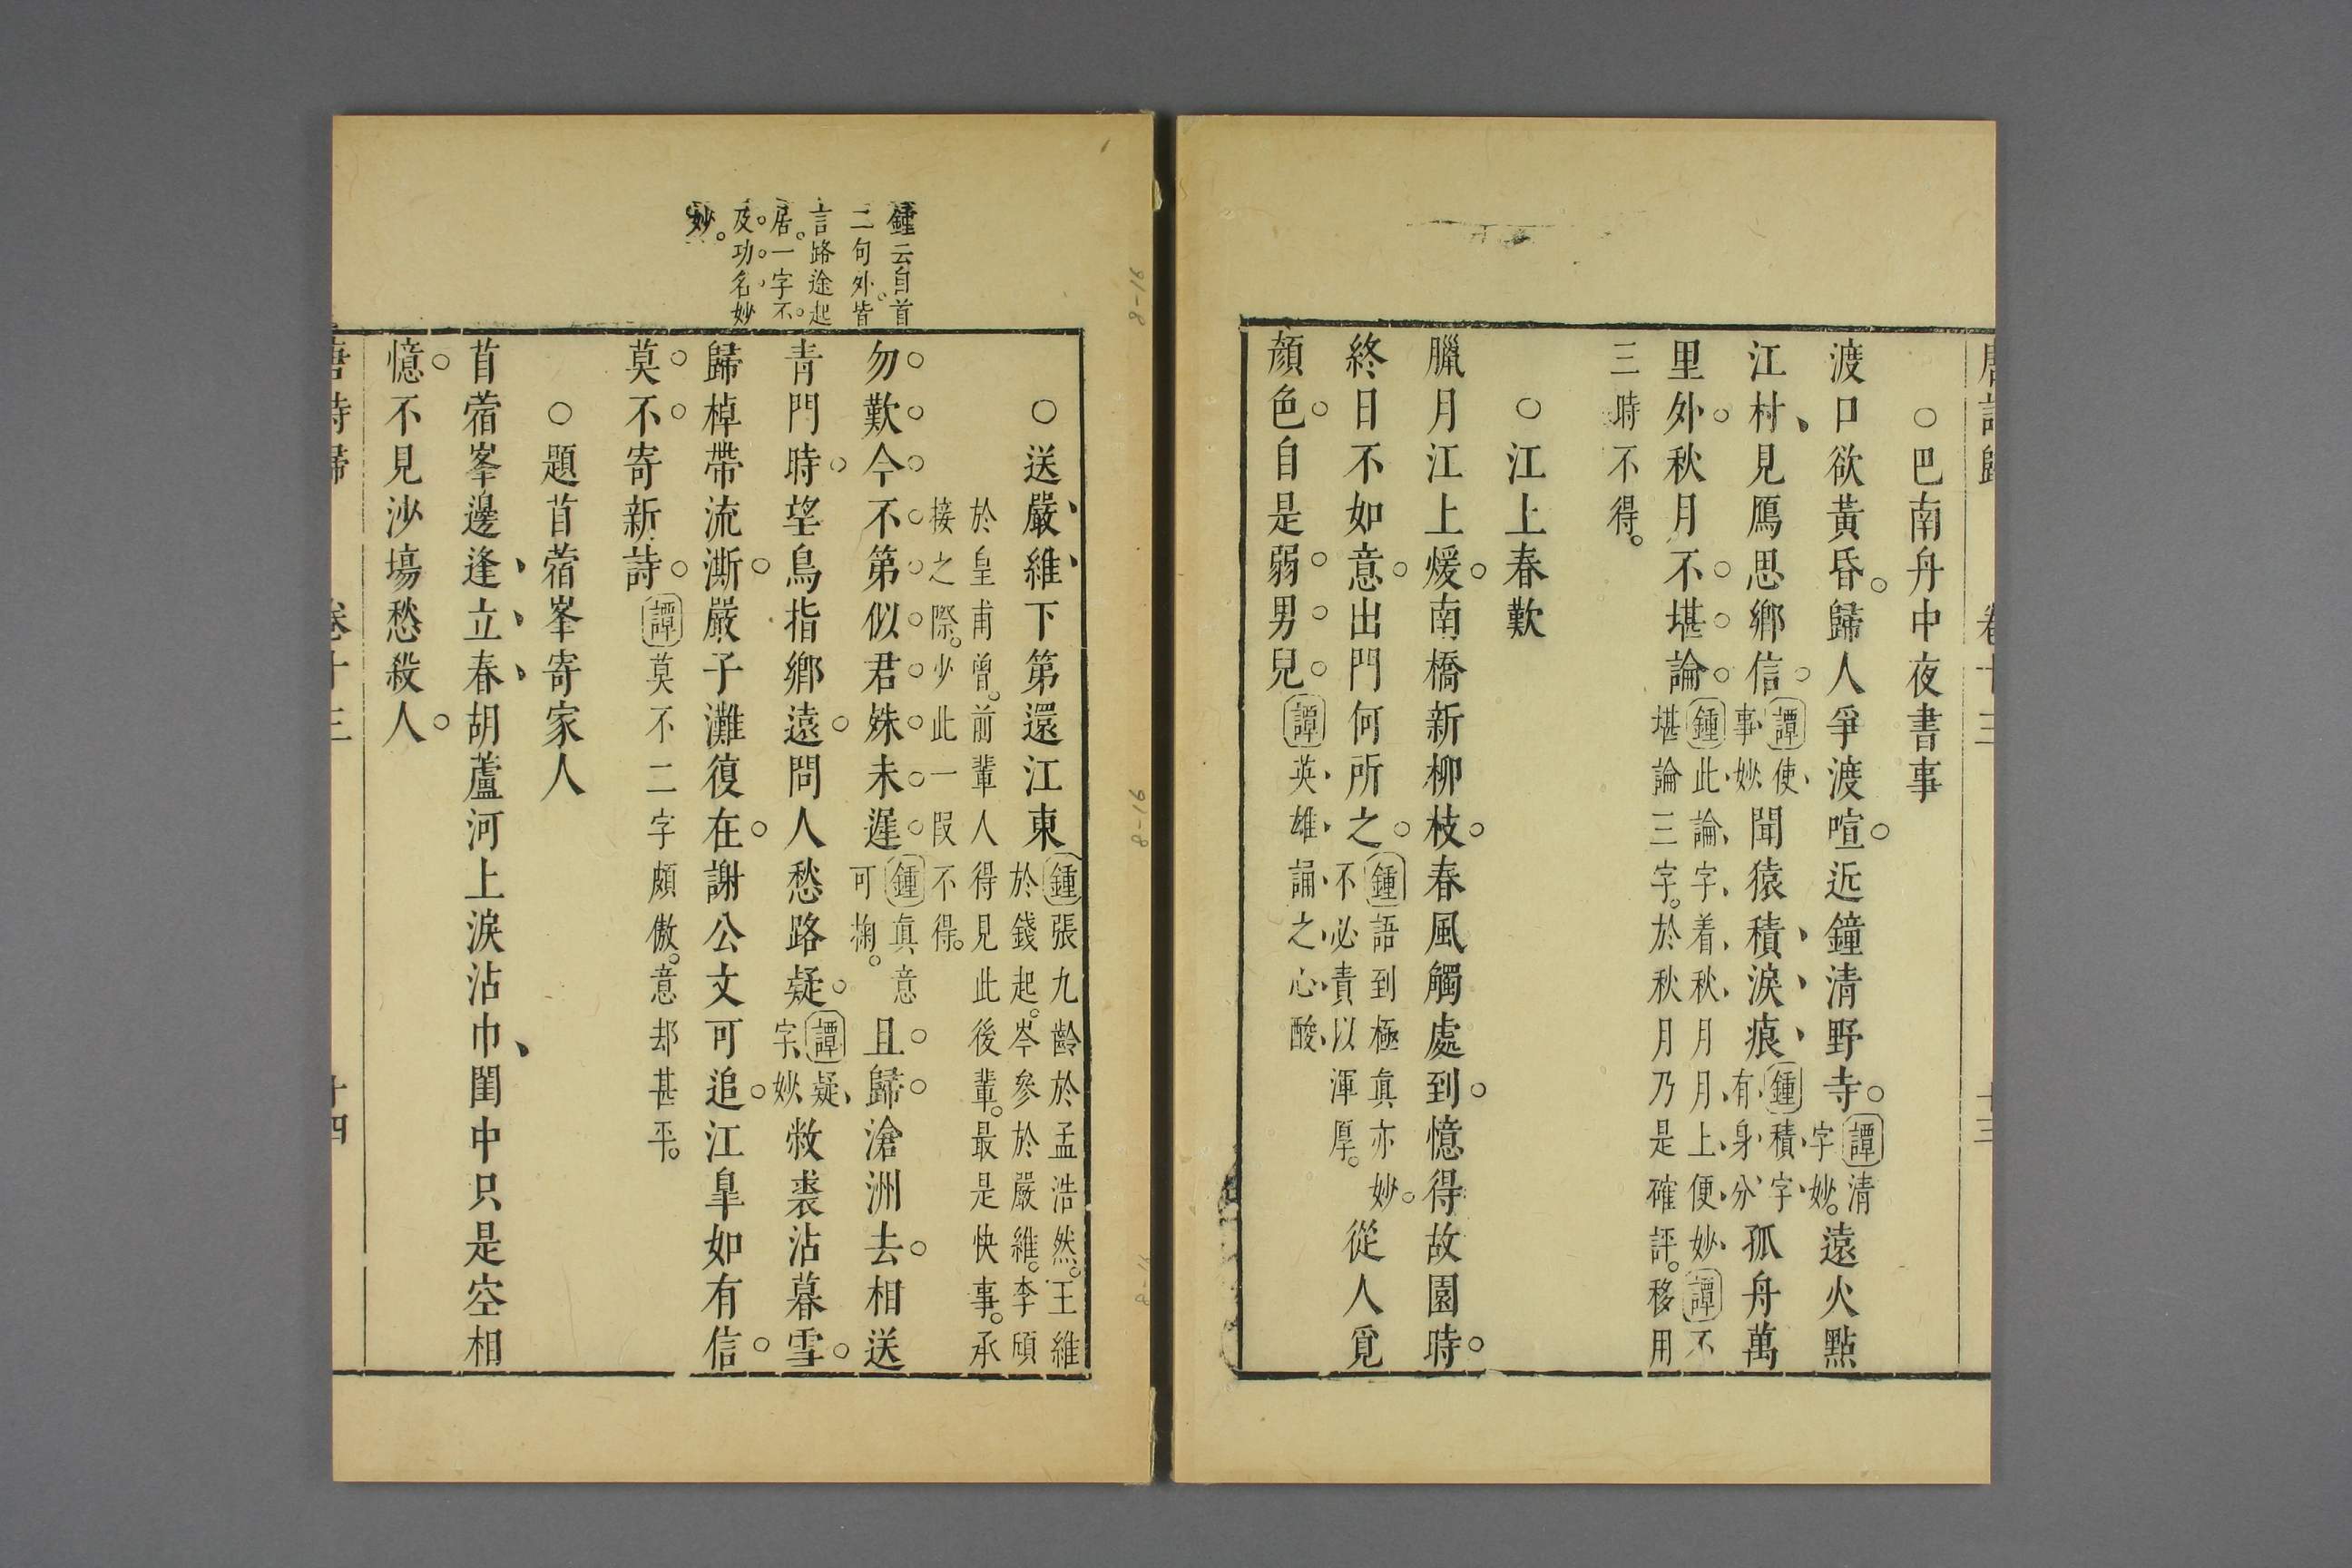 ○巴南舟中夜書事
渡口欲黃昏歸人爭渡喧近鐘清野寺譚清字妙遠火點
江村見鴈思鄉信譚使事妙聞猿積淚痕鍾積字有身分孤舟萬
里外秋月不堪論鍾此論字着秋月月上便妙譚不堪論三字於秋月乃是確評移用
三時不得
○江上春歎
臘月江上煖南橋新柳枝春風觸處到憶得故園時
終日不如意出門何所之鍾語到極真亦妙不必責以渾厚從人覓
顏色自是弱男兒譚英雄誦之心酸
鍾云自首
二句外皆
言路途起
居一字不
及功名妙
妙
○送嚴維下第還江東鍾張九齡於孟浩然王維於錢起岑參於嚴維李頎
於皇甫曾前輩人得見此後輩最是快事承接之際少此一段不得
勿歎今不第似君姝未遲鍾真意可掬且歸滄洲去相送
青門時望鳥指鄉遠問人愁路疑譚疑字妙敝裘沾暮雪
歸棹帶流澌嚴子灘復在謝公文可追江皐如有信
莫不寄新詩譚莫不二字頗傲意却甚平
○題苜蓿峯寄家人
苜蓿峯邊逢立春胡蘆河上淚沾巾閨中只是空相
憶不見沙塲愁殺人
卷十三
十四